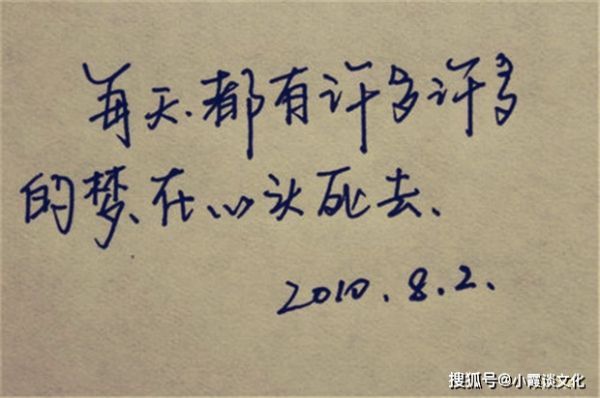 每天.都有许多许多
的梦.在心头死去.
2010.8.2.
搜狐号@小霞谈文化